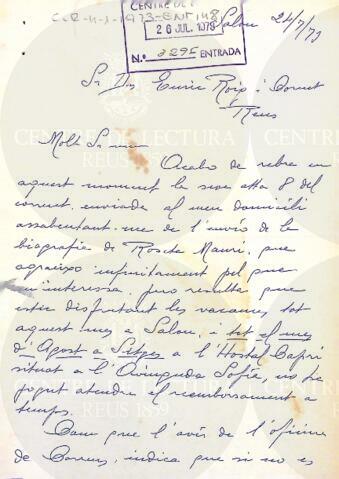 C.R-4-1-1973-ENT, 148
CENTRE DE L
26 JUL. 1973
N.º 2295 ENTRADA
Salou 24/7/73
Sr Dn Enric Roig i Cornet
Reus
Molt Sr meu
Acabo de rebre en
aquest moment la seva atta 8 del
corrent, enviada al meu domicili
assabentant-me de l'envío de la
biografia de Roseta Mauri, que
agraeixo infinitament pel que
m'interessa, pero resulta que
estic disfrutant les vacances, tot
aquest mes a Salou, i tot el mes
d'Agost a Sitges a l'Hostal Capri
situat a l'Avinguda Sofia, no he
pogut atendre el reemborsament a
temps.
Com que l'avís de l'oficina
de Correus, indica que si no es
CENTRE DE LECTURA
REUS 1859
CENTRE DE LECTURA
REUS 1859